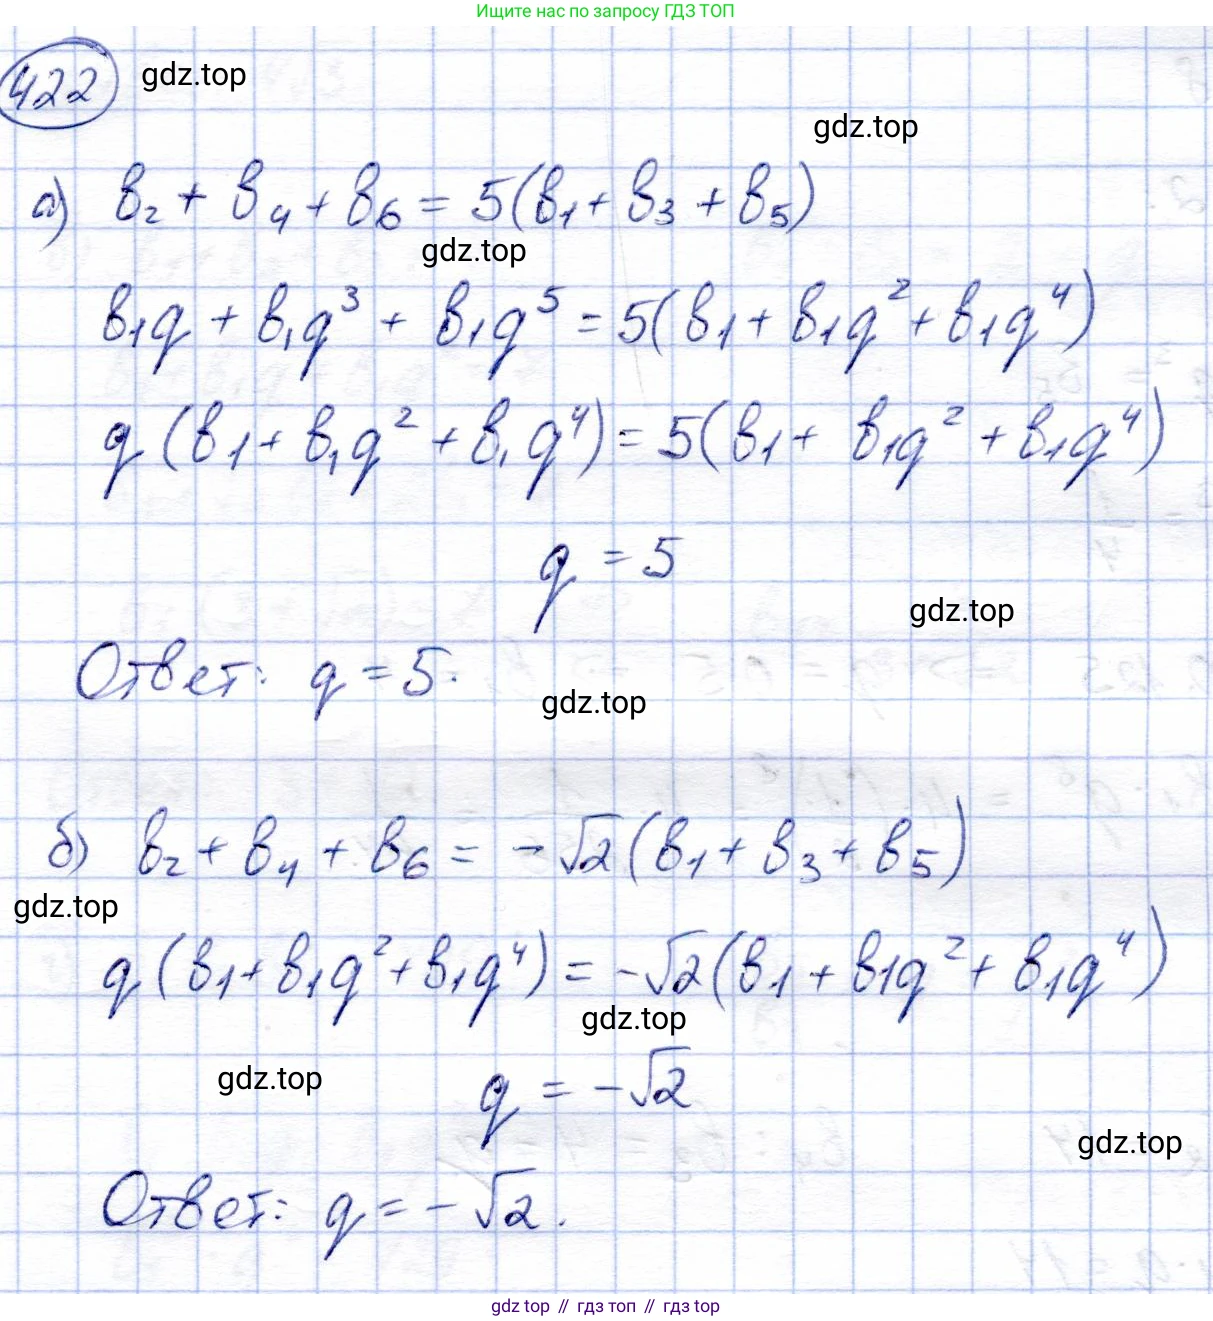 Ищите нас по запросу ГДЗ ТОП
422
gdz.top
gdz.top
а) b₂ + b₄ + b₆ = 5(b₁ + b₃ + b₅)
gdz.top
b₁q + b₁q³ + b₁q⁵ = 5(b₁ + b₁q² + b₁q⁴)
q(b₁ + b₁q² + b₁q⁴) = 5(b₁ + b₁q² + b₁q⁴)
q = 5
gdz.top
Ответ: q = 5.
gdz.top
б) b₂ + b₄ + b₆ = -√2(b₁ + b₃ + b₅)
gdz.top
q(b₁ + b₁q² + b₁q⁴) = -√2(b₁ + b₁q² + b₁q⁴)
gdz.top
gdz.top
q = -√2
gdz.top
Ответ: q = -√2.
gdz top // гдз топ // gdz top